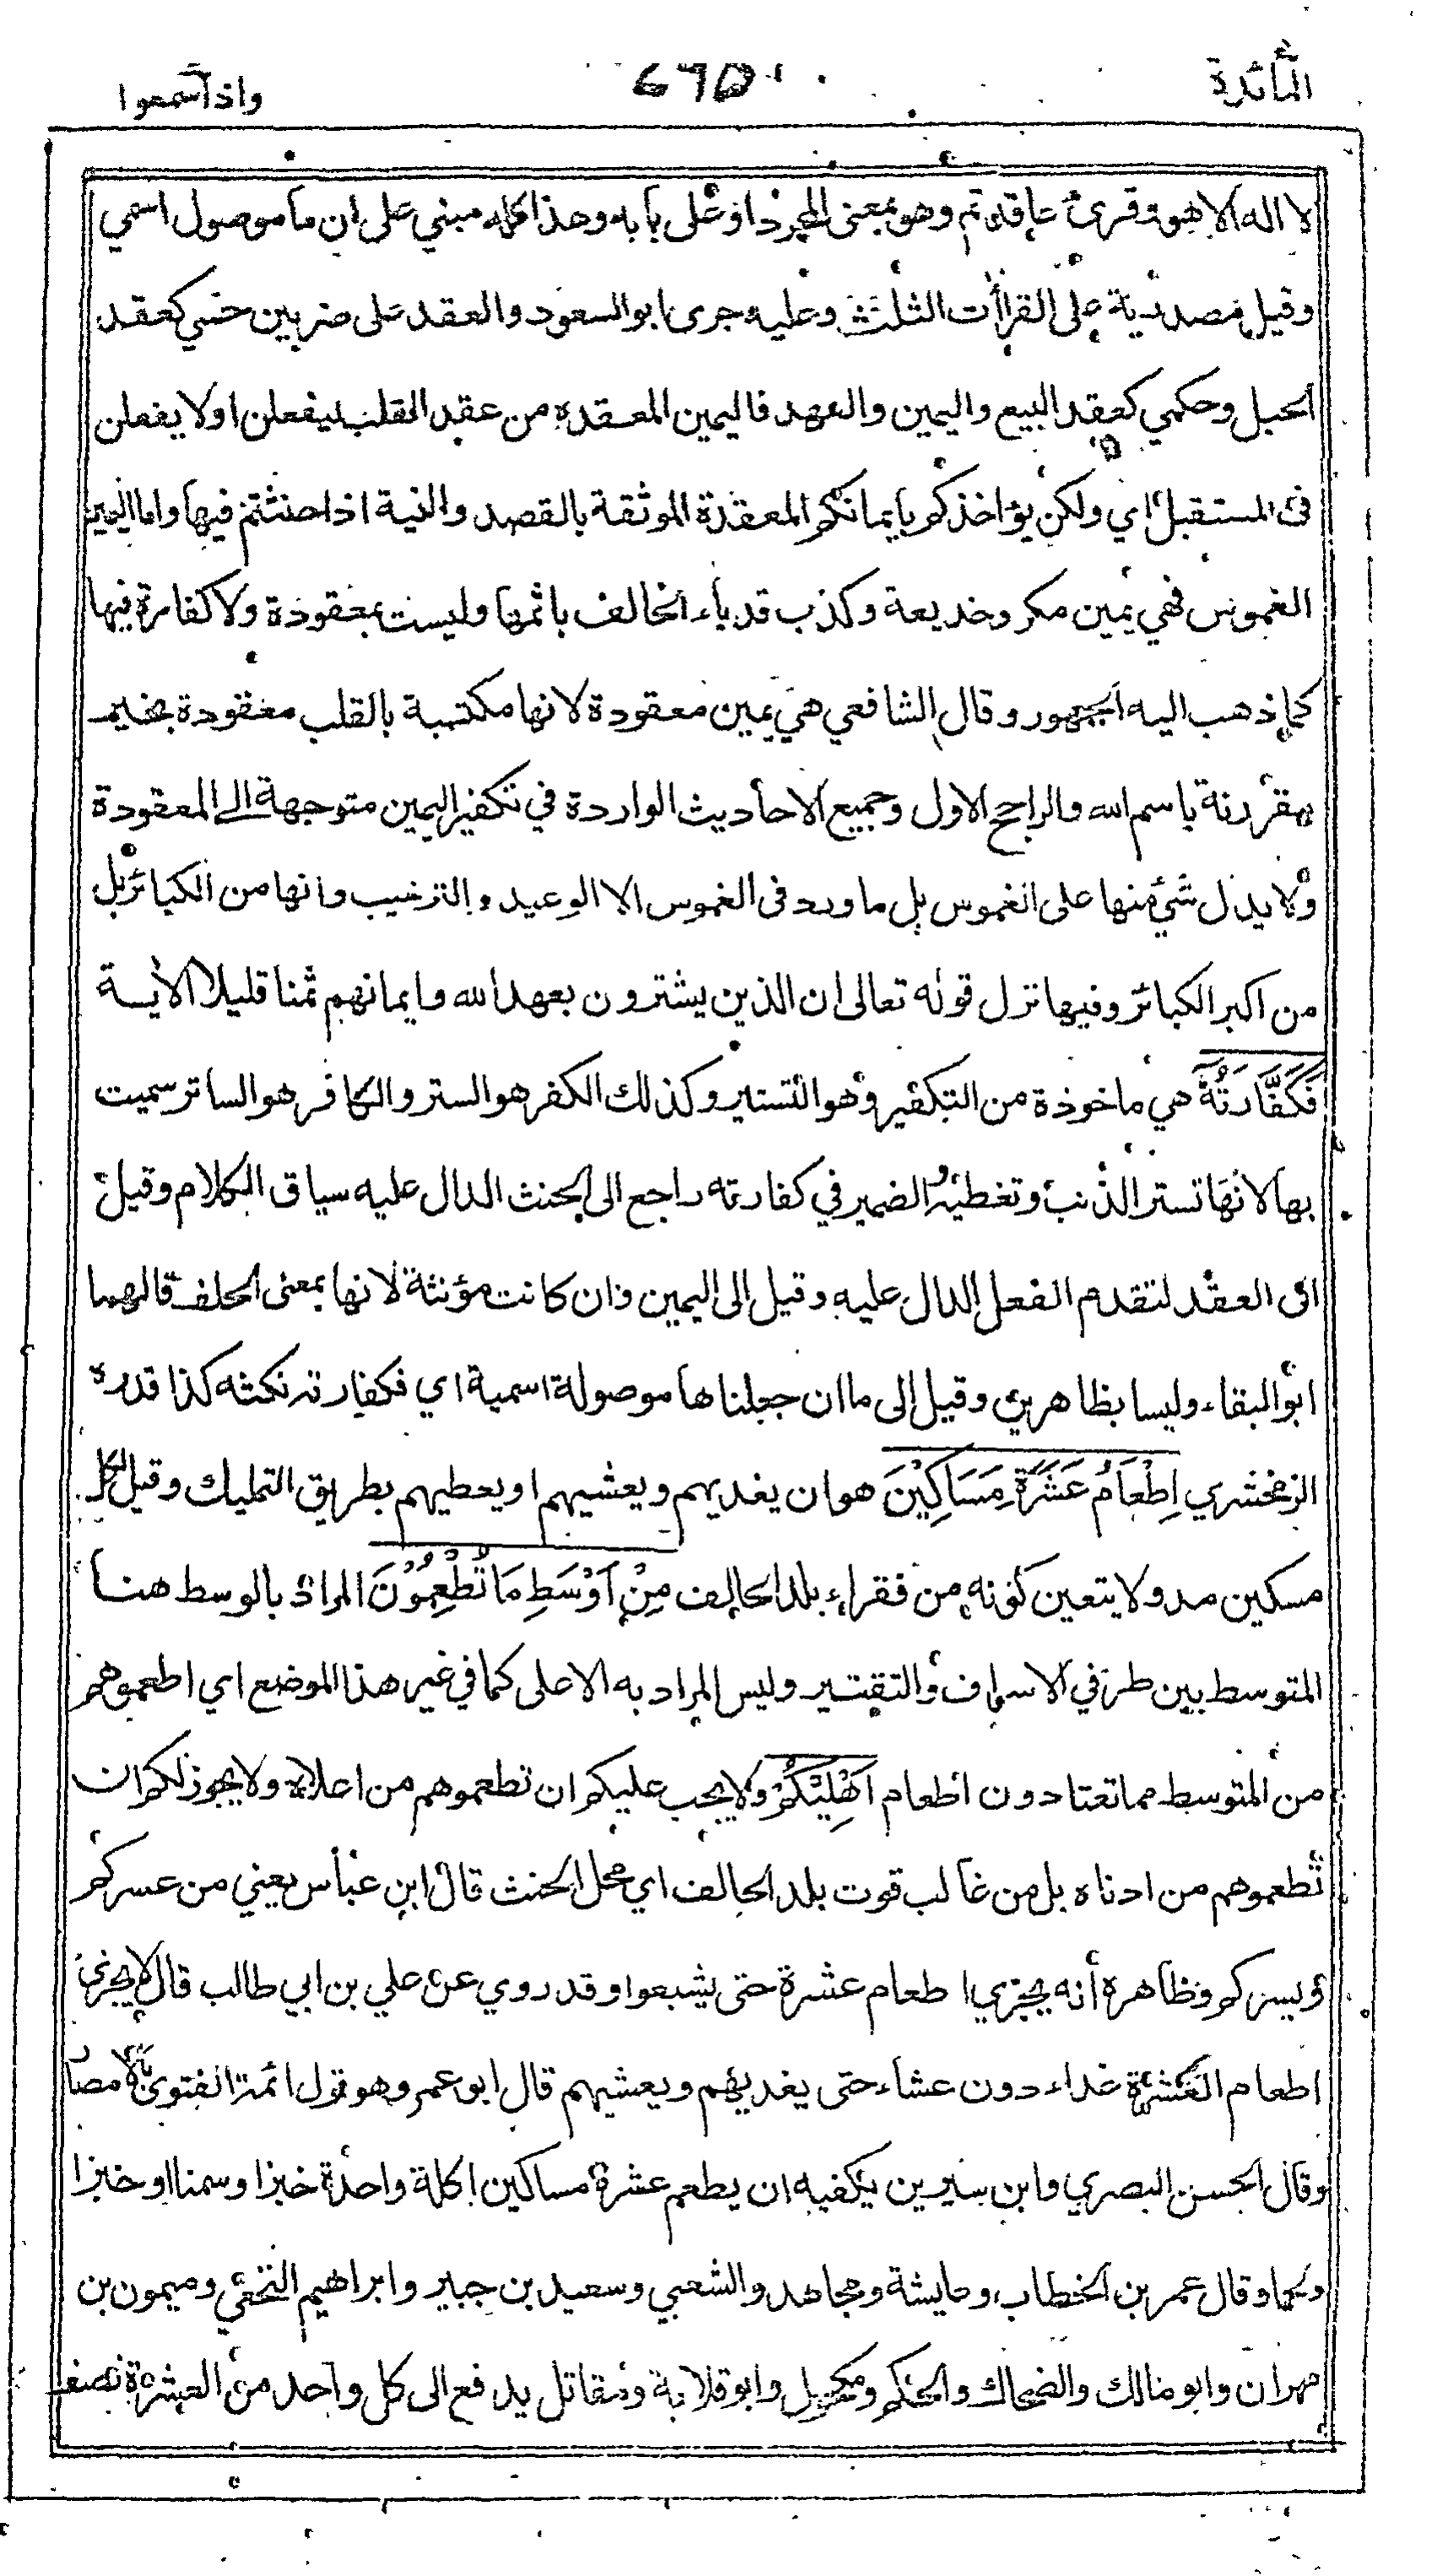 المائدة
واذا سمعوا
لا اله الا هو وقرئ عاقدتم وهو بمعنى المجرد او على بابه وهذا كله مبني على ان ما موصول اسمي
وقيل مصدرية على القراآت الثلث وعليه جرى ابو السعود والعقد على ضربين حسي كعقد
الحبل وحكمي كعقد البيع واليمين والعهد فاليمين المعقدة من عقد القلب ليفعلن او لا يفعلن
في المستقبل اي ولكن يؤاخذكم بايمانكم المعقدة الموثقة بالقصد والنية اذا حنثتم فيها واما اليمين
الغموس فهي يمين مكر وخديعة وكذب قد باء الحالف باثمها وليست بمعقودة ولا كفارة فيها
كما ذهب اليه الجمهور وقال الشافعي هي يمين معقودة لانها مكتسبة بالقلب معقودة بخير
مقرونة باسم الله والراجح الاول وجميع الاحاديث الواردة في تكفير اليمين متوجهة الى المعقودة
ولا يدل شئ منها على الغموس بل ما ورد في الغموس الا الوعيد والترهيب وانها من الكبائر بل
من اكبر الكبائر وفيها نزل قوله تعالى ان الذين يشترون بعهد الله وايمانهم ثمنا قليلا الاية
فَكَفَّارَتُهُ هي ماخوذة من التكفير وهو التستير وكذلك الكفر هو الستر والكافر هو الساتر سميت
بها لانها تستر الذنب وتغطيه والضمير في كفارته راجع الى الحنث الدال عليه سياق الكلام وقيل
الى العقد لتقدم الفعل الدال عليه وقيل الى اليمين وان كانت مؤنثة لانها بمعنى الحلف قالهما
ابو البقاء وليسا بظاهرين وقيل الى ما ان جعلناها موصولة اسمية اي فكفارته نكثه كذا قدره
الزمخشري اِطْعَامُ عَشَرَةِ مَسَاكِيْنَ هو ان يغديهم ويعشيهم او يعطيهم بطريق التمليك وقيل لكل
مسكين مد ولا يتعين كونه من فقراء بلد الحالف مِنْ اَوْسَطِ مَا تُطْعِمُوْنَ المراد بالوسط هنا
المتوسط بين طرفي الاسراف والتقتير وليس المراد به الاعلى كما في غير هذا الموضع اي اطعموهم
من المتوسط مما تعتادون اطعام اَهْلِيْكُمْ ولا يجب عليكم ان تطعموهم من اعلاه ولا يجوز لكم ان
تطعموهم من ادناه بل من غالب قوت بلد الحالف اي محل الحنث قال ابن عباس يعني من عسركم
ويسركم وظاهره أنه يجزي اطعام عشرة حتى يشبعوا وقد روي عن علي بن ابي طالب قال لا يجزئ
اطعام العشرة غداء دون عشاء حتى يغديهم ويعشيهم قال ابو عمر وهو قول ائمة الفتوى بالامصار
وقال الحسن البصري وابن سيرين يكفيه ان يطعم عشرة مساكين اكلة واحدة خبزا وسمنا او خبزا
ولحما وقال عمر بن الخطاب وعايشة ومجاهد والشعبي وسعيد بن جبير وابراهيم النخعي وميمون بن
مهران وابو مالك والضحاك والحكم ومكحول وابو قلابة ومقاتل يدفع الى كل واحد من العشرة نصف